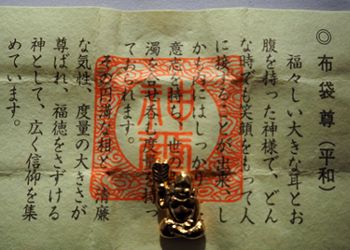 ◎布袋尊(平和)
福々しい大きな耳とお
腹を持った神様で、どん
な時でも笑顔をもって人
に接することが出来、し
かも内にはしっかり
意志を持ち、世の
濁を併せ呑む度量を持っ
ておられます。
その円満な相と、清廉
な気性、度量の大きさが
尊ばれ、福徳をさずける
神として、広く信仰を集
めています。